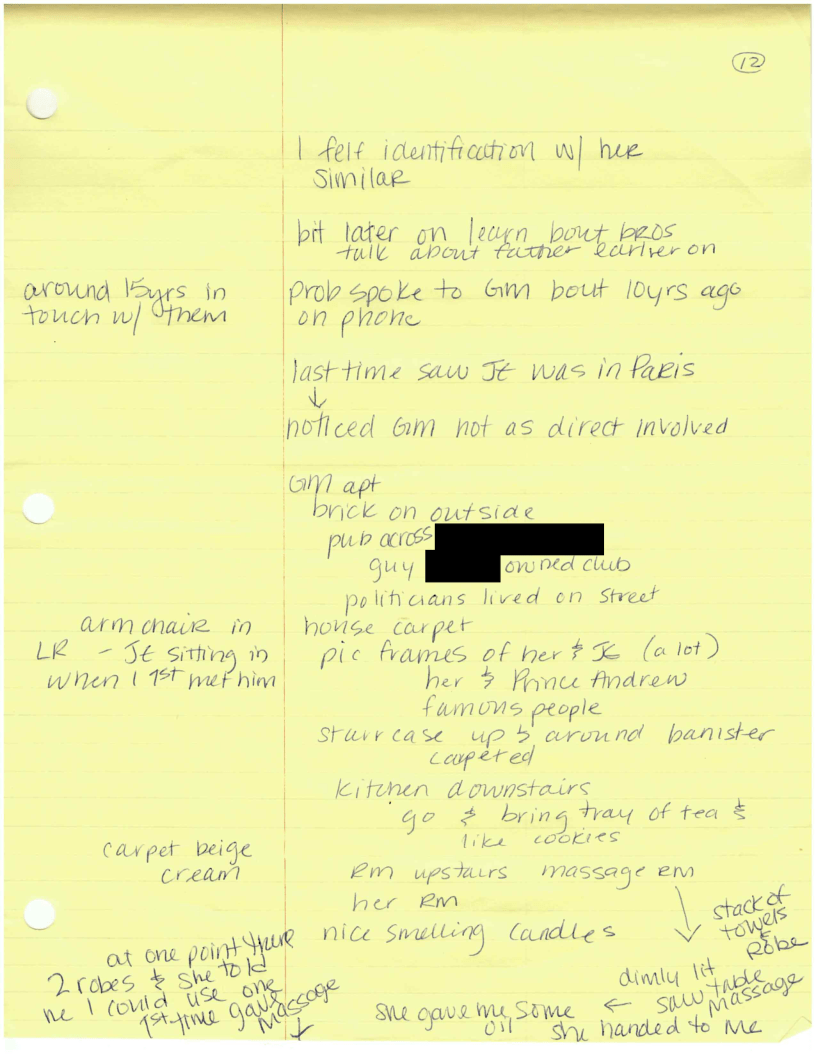 12
I felt identification w/ her
similar
bit later on learn bout bros
talk about father earlier on
around 15yrs in
touch w/ them
prob spoke to GM bout 10yrs ago
on phone
last time saw JE was in Paris
↓
noticed GM not as direct involved
GM apt
brick on outside
pub across
guy owned club
politicians lived on street
armchair in
LR - JE sitting in
when I 1st met him
house carpet
pic frames of her & JE (a lot)
her & Prince Andrew
famous people
staircase up & around banister
carpeted
kitchen downstairs
go & bring tray of tea &
like cookies
carpet beige
cream
rm upstairs massage rm
her rm
nice smelling candles
stack of
towels
&
robe
dimly lit
saw table
massage
she handed to me
← she gave me some
oil
at one point there
2 robes & she told
me I could use one
1st time gave
massage
↓